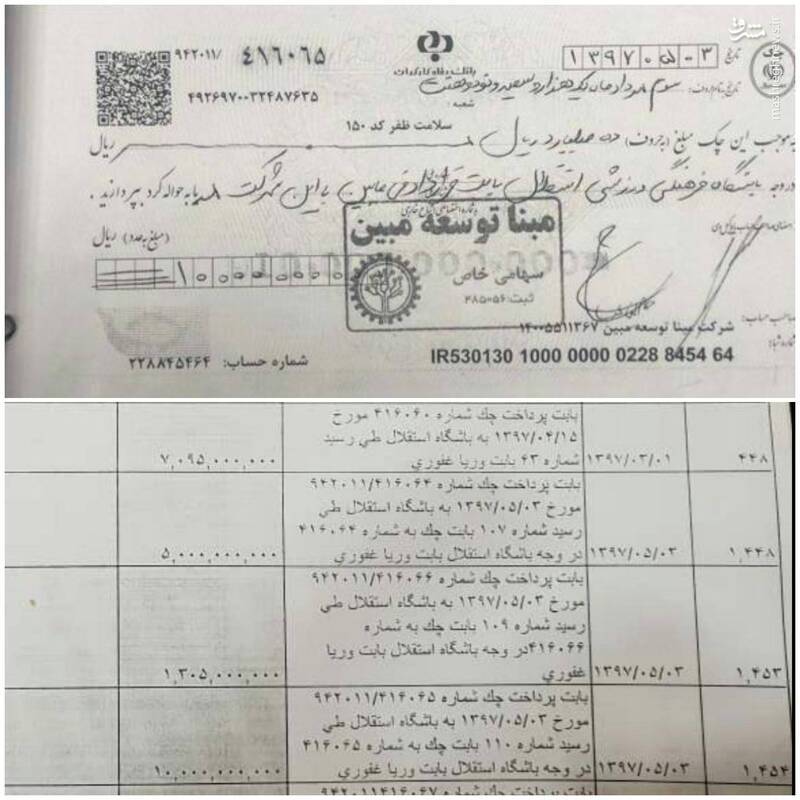 ۹۴۲۰۱۱/ ۴۱۶۰۶۵
۴۹۲۶۹۷۰۰۳۲۴۸۷۶۳۵
بانک رفاه کارگران
شعبه :
سلامت ظفر کد ۱۵۰
تاریخ ۱۳۹۷۰۵۰۳
مشرق
mashreghnews.ir
تاریخ بنام حروف: سوم مرداد ماه یکهزار و سیصد و نود و هفت
به موجب این چک مبلغ (بحروف) ده میلیارد ریال ریال
در وجه باشگاه فرهنگی ورزشی استقلال بابت قرارداد فی مابین با این شرکت یا به حواله کرد بپردازید .
مبلغ بعدد) ریال
۱۰۰۰۰۰۰۰۰۰۰
مبنا توسعه مبین
سهامی خاص
ثبت: ۴۸۵۰۵۶
صاحب حساب: شرکت مبنا توسعه مبین ۱۴۰۰۵۵۱۱۳۶۷
شماره شبا: IR530130 1000 0000 0228 8454 64
شماره حساب: ۲۲۸۸۴۵۴۶۴
بابت پرداخت چك شماره ۴۱۶۰۶۰ مورخ
۱۳۹۷/۰۴/۱۵ به باشگاه استقلال طي رسيد
۴۴۸ ۱۳۹۷/۰۳/۰۱ شماره ۴۳ بابت وريا غفوري ۷,۰۹۵,۰۰۰,۰۰۰
بابت پرداخت چك شماره ۹۴۲۰۱۱/۴۱۶۰۶۴
مورخ ۱۳۹۷/۰۵/۰۳ به باشگاه استقلال طي
رسيد شماره ۱۰۷ بابت چك به شماره ۴۱۶۰۶۴
۱,۴۴۸ ۱۳۹۷/۰۵/۰۳ در وجه باشگاه استقلال بابت وريا غفوري ۵,۰۰۰,۰۰۰,۰۰۰
بابت پرداخت چك شماره ۹۴۲۰۱۱/۴۱۶۰۶۶
مورخ ۱۳۹۷/۰۵/۰۳ به باشگاه استقلال طي
رسيد شماره ۱۰۹ بابت چك به شماره
۴۱۶۰۶۶در وجه باشگاه استقلال بابت وريا
۱,۴۵۳ ۱۳۹۷/۰۵/۰۳ غفوري ۱,۳۰۵,۰۰۰,۰۰۰
بابت پرداخت چك شماره ۹۴۲۰۱۱/۴۱۶۰۶۵
مورخ ۱۳۹۷/۰۵/۰۳ به باشگاه استقلال طي
رسيد شماره ۱۱۰ بابت چك به شماره ۴۱۶۰۶۵
۱,۴۵۴ ۱۳۹۷/۰۵/۰۳ در وجه باشگاه استقلال بابت وريا غفوري ۱۰,۰۰۰,۰۰۰,۰۰۰
بابت پرداخت چك شماره ۹۴۲۰۱۱/۴۱۶۰۶۷